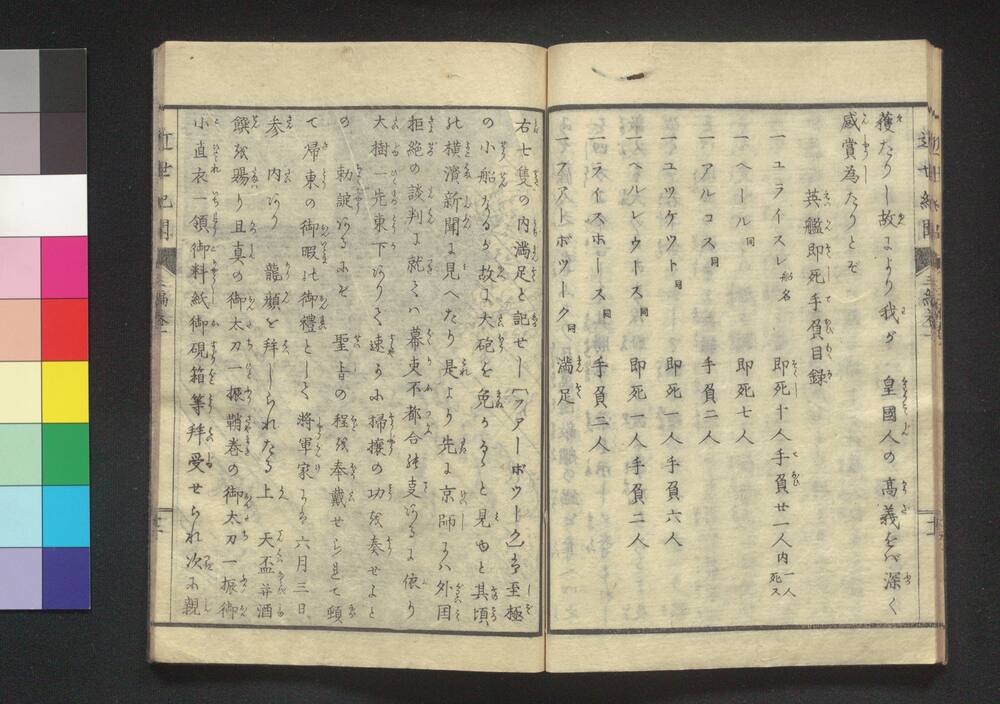 獲たりし故により我が 皇國人の高義をバ深く
感賞為たりとぞ
英艦即死手負目録
一 ユライスレ 船名 即死十人手負廿一人内一人死ス
一 ヘール 同 即死七人
一 アルコス 同 手負二人
一 ユツケツト 同 即死一人手負六人
一 ヘルレウース 同 即死一人手負二人
一 ライスホース 同 手負三人
一 フアストボツーク 同 満足
右七隻の内満足と記せし「フアーボツーク」ハ至極
の小船なるが故に大砲を免かるゝと見ゆと其頃
の横濱新聞に見へたり是より先に京師にハ外国
拒絶の談判に就てハ幕吏不都合の事あるに依り
大樹一先東下ありて速かに掃攘の功を奏せよと
の 勅諚あるにぞ 聖旨の程を奉戴せられて頓
て帰東の御暇の御禮として將軍家にハ六月三日
参 内あり 龍顔を拝しられたる上 天盃并酒
饌を賜り且真の御太刀一振鞘巻の御太刀一振御
小直衣一領御料紙御硯箱等拜受せられ次に親
近世紀聞 三編巻一 十一